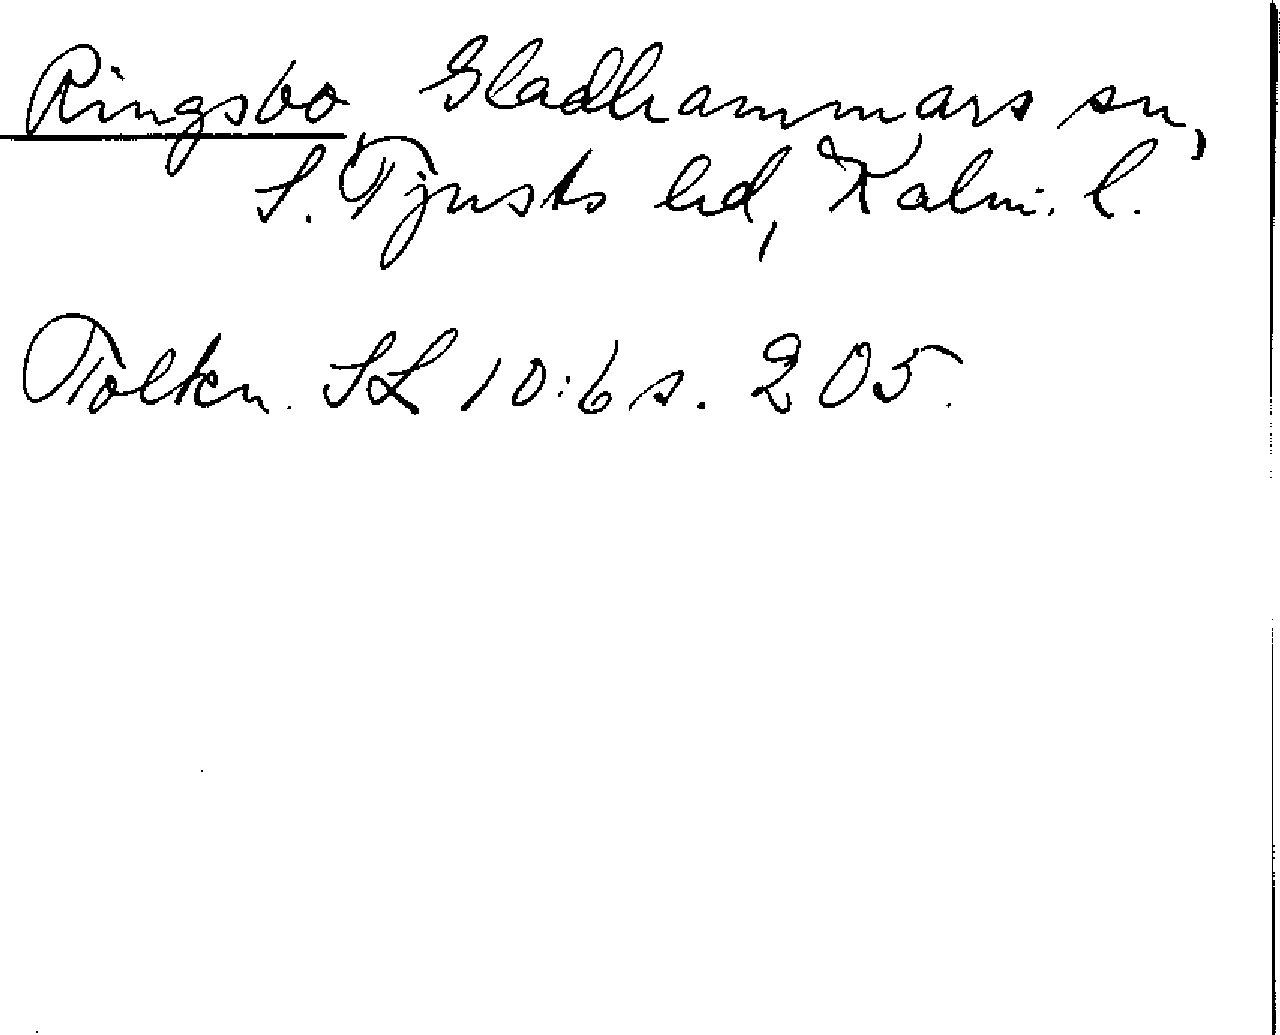 Ringsbo Gladhammars sn,
S. Tjusts hd, Kalm. l.
Tolkn. SL 10:6 s. 205.